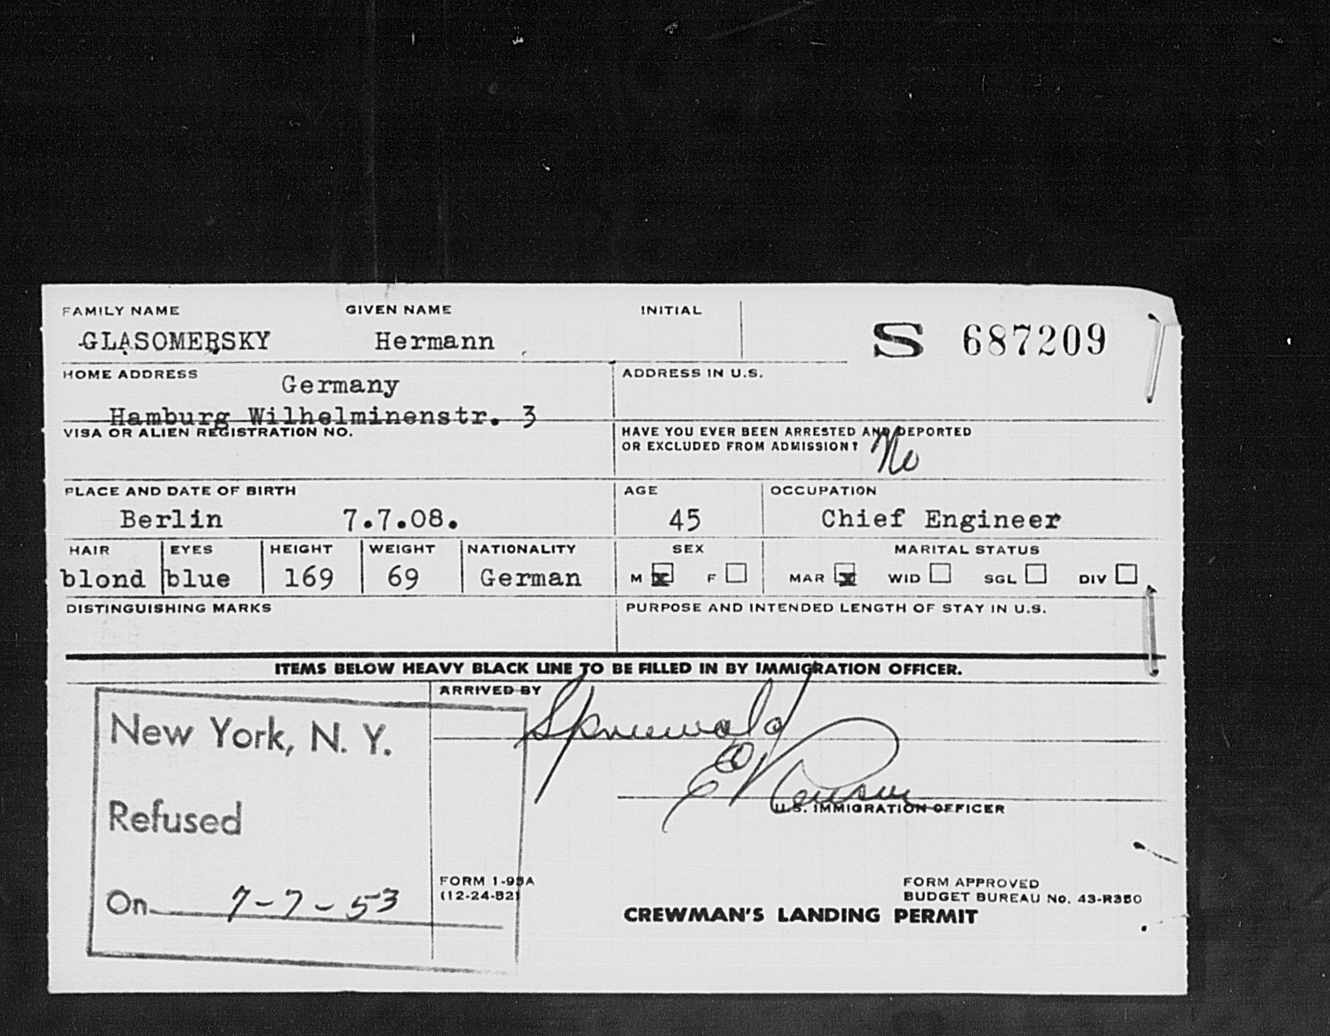 FAMILY NAME GIVEN NAME INITIAL
GLASOMERSKY Hermann S 687209
HOME ADDRESS ADDRESS IN U.S.
Germany
Hamburg Wilhelminenstr. 3
VISA OR ALIEN REGISTRATION NO. HAVE YOU EVER BEEN ARRESTED AND DEPORTED
OR EXCLUDED FROM ADMISSION? No
PLACE AND DATE OF BIRTH AGE OCCUPATION
Berlin 7.7.08. 45 Chief Engineer
HAIR EYES HEIGHT WEIGHT NATIONALITY SEX MARITAL STATUS
blond blue 169 69 German M x F MAR x WID SGL DIV
DISTINGUISHING MARKS PURPOSE AND INTENDED LENGTH OF STAY IN U.S.
ITEMS BELOW HEAVY BLACK LINE TO BE FILLED IN BY IMMIGRATION OFFICER.
ARRIVED BY
New York, N. Y.
U.S. IMMIGRATION OFFICER
Refused
FORM I-95A FORM APPROVED
(12-24-52) BUDGET BUREAU No. 43-R350
On 7-7-53
CREWMAN'S LANDING PERMIT